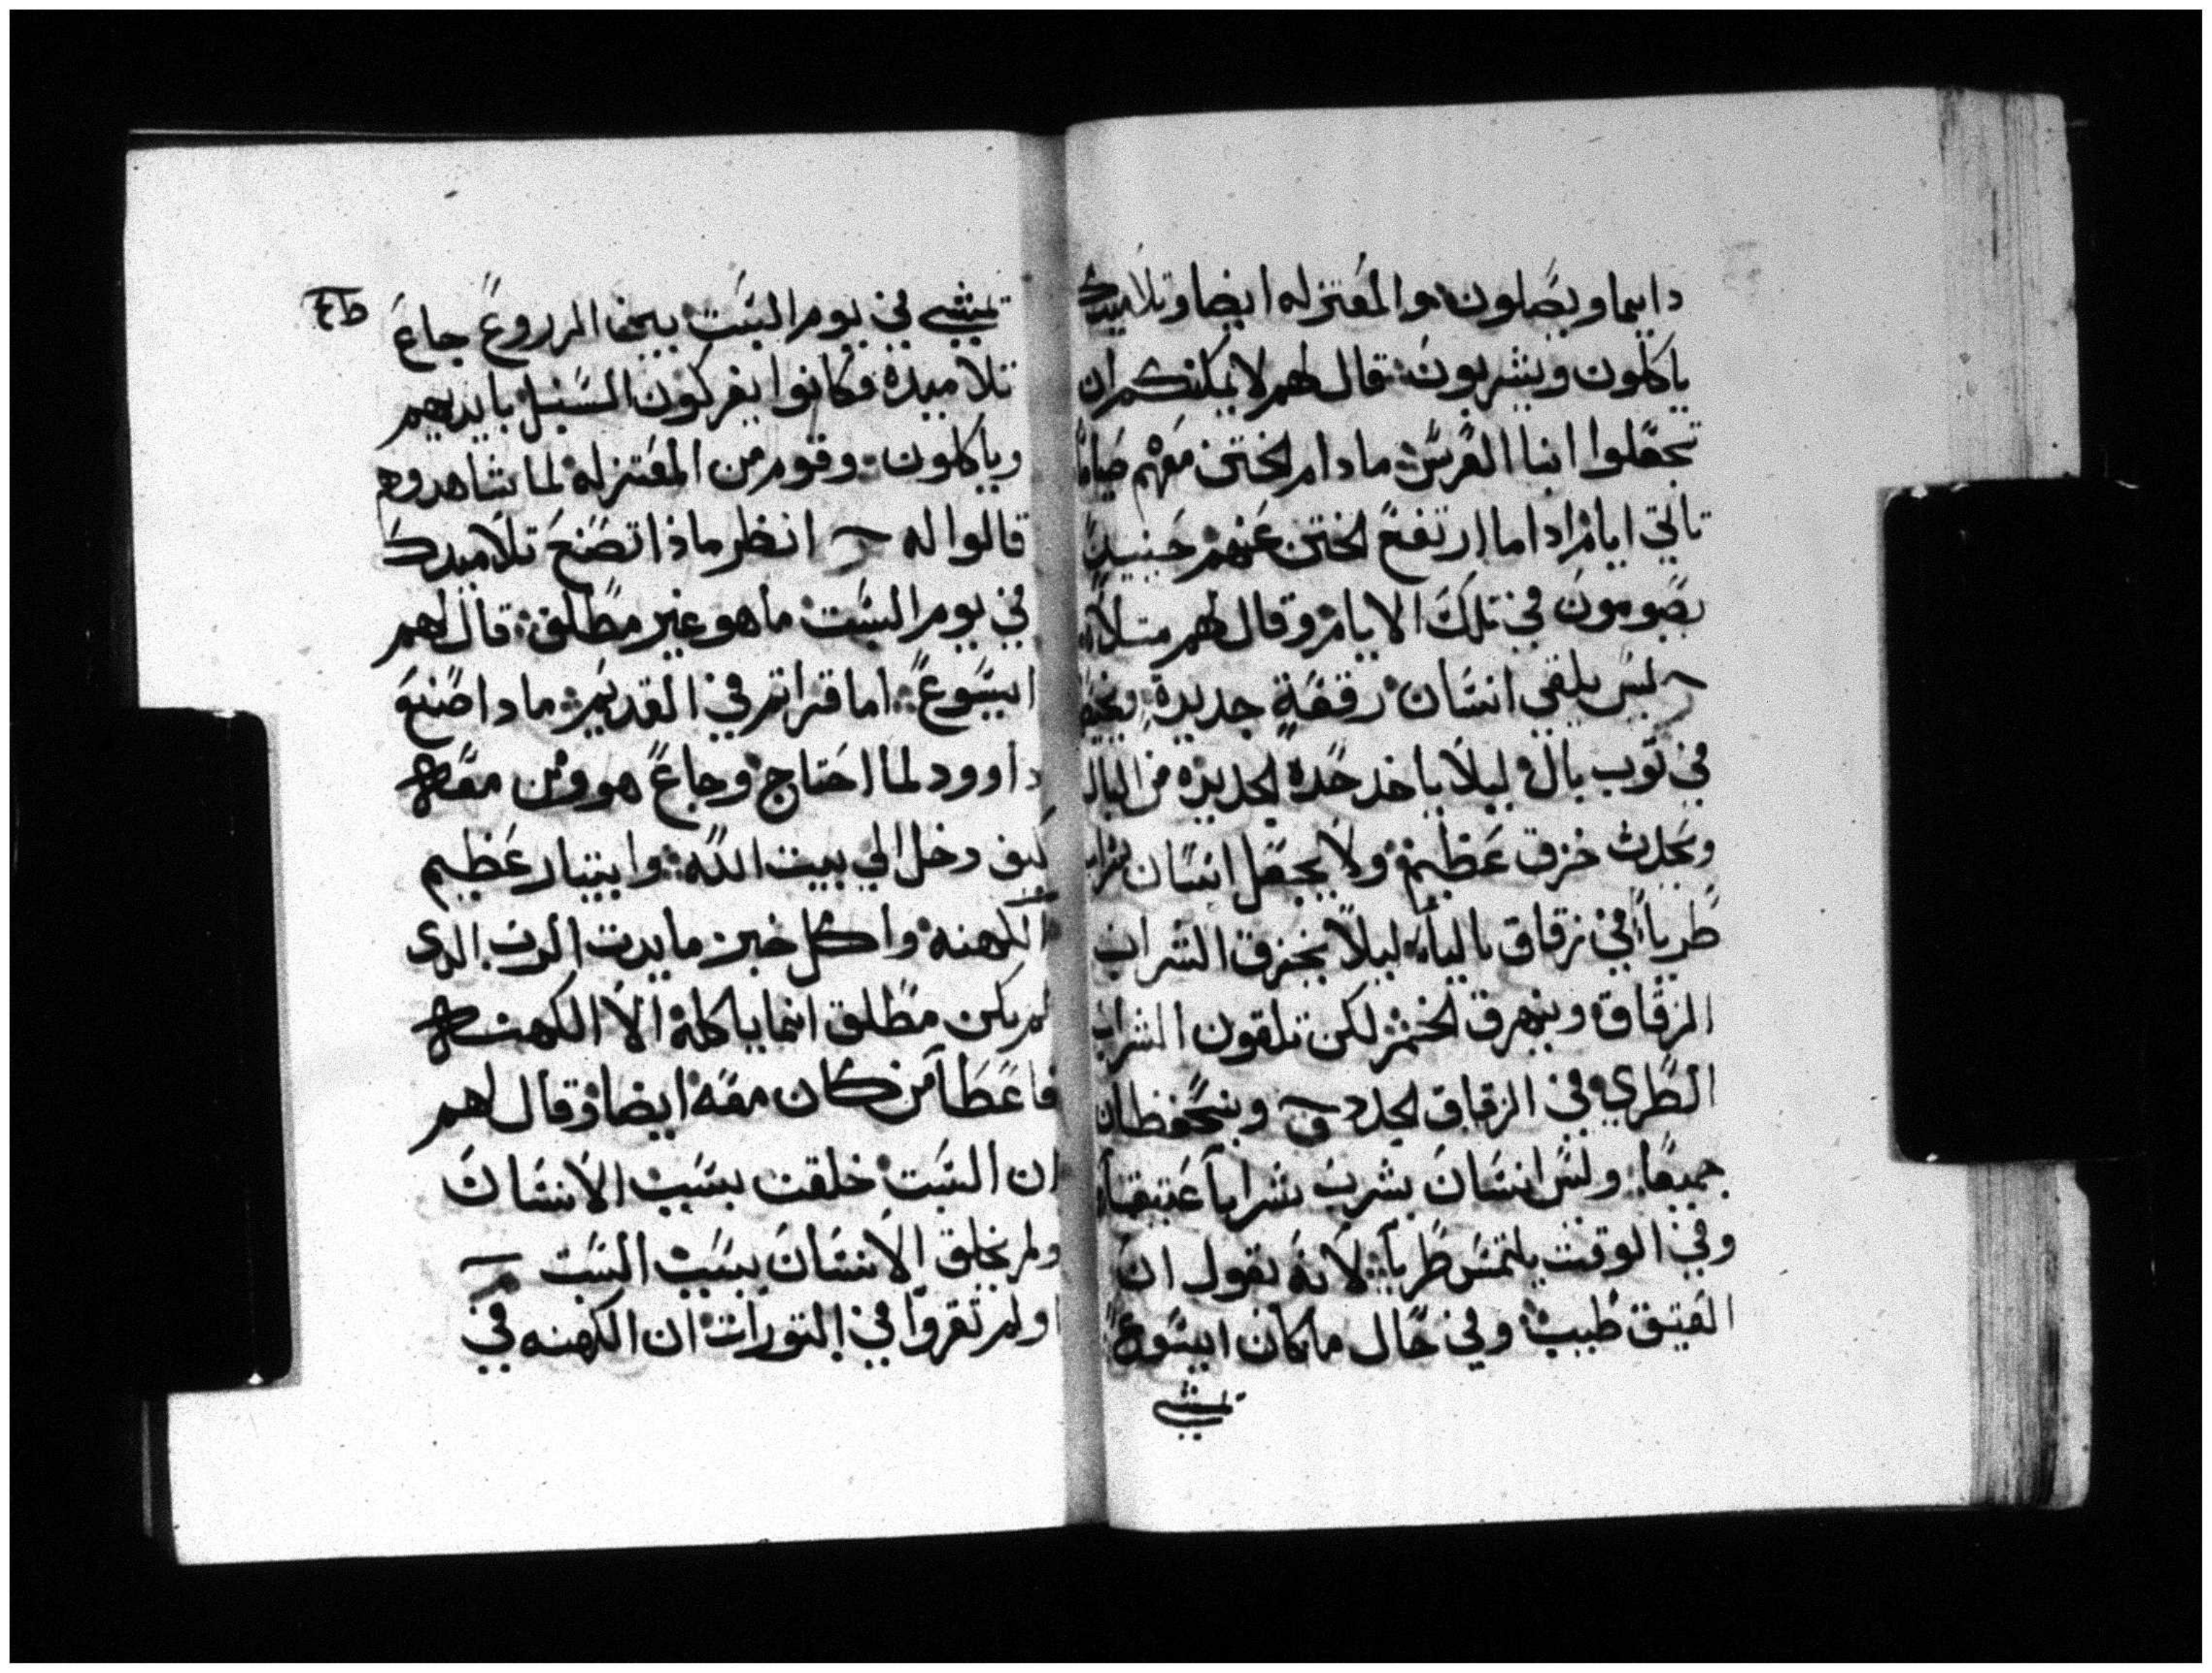 دايما ويصلون والمعتزله ايضا وتلاميدك
ياكلون ويشربون قال لهم لا يمكنكم ان
تجعلوا ابنا العرس ما دام الختن معهم صياما
تاتي ايام ادا ما ارتفع الختن عنهم حينيد
يصومون في تلك الايام وقال لهم متلا
ليس يلقي انسان رقعة جديدة ويخيط
في توب بال ليلا ياخد حدة الجديده من البال
ويحدث خرق عظيم ولا يجعل انسان شراب
طريا في زقاق باليه ليلا يخرق الشراب
الزقاق وينهرق الخمر لكن تلقون الشراب
الطري في الزقاق الجدد وينحفظان
جميعا وليس انسان يشرب شرابا عتيقا
وفي الوقت يلتمس طريا لانه يقول ان
العتيق طيب وفي حال ما كان ايسوع
يمشي
يمشي في يوم السبت بين الزروع جاع
تلاميده فكانوا يفركون السنبل بايديهم
وياكلون وقوم من المعتزله لما شاهدوهم
قالوا له انظر ماذا تصنع تلاميدك
في يوم السبت ما هو غير مطلق قال لهم
ايسوع اما قراتم في القديم مادا صنع
داوود لما احتاج وجاع هو ومن معه
كيف دخل الي بيت الله وابيتار عظيم
الكهنه واكل خبز مايدت الرب الدي
لم يكن مطلق انما ياكله الا الكهنه
فاعطا من كان معه ايضا وقال لهم
ان السبت خلقت بسبب الانسان
ولم يخلق الانسان بسبب السبت
اولم تقروا في التورات ان الكهنه في